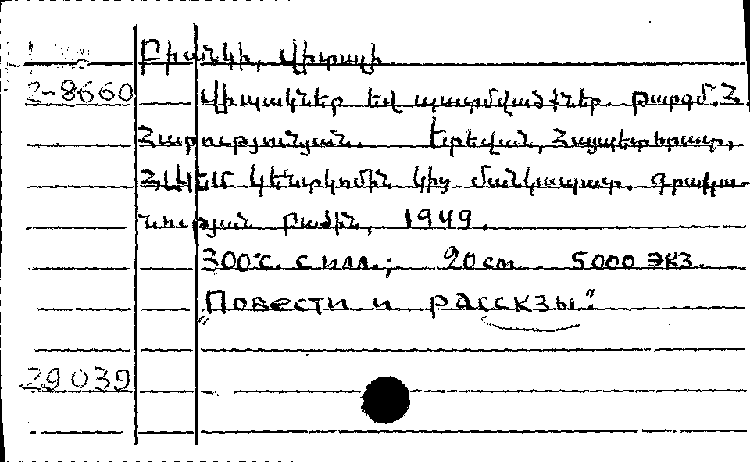 Բիանկի, Վիտալի
2-8660 Վիպակներ եվ պատմվածքներ. թարգմ. Հ.
Հարությունյան. Երեվան, Հայպետհրատ,
ՀԼԿԵՄ Կենտկոմին կից մանկապատ. գրակա-
նության բաժին, 1949.
300 с. с илл.; 20 см 5000 экз.
"Повести и расскзы".
29039